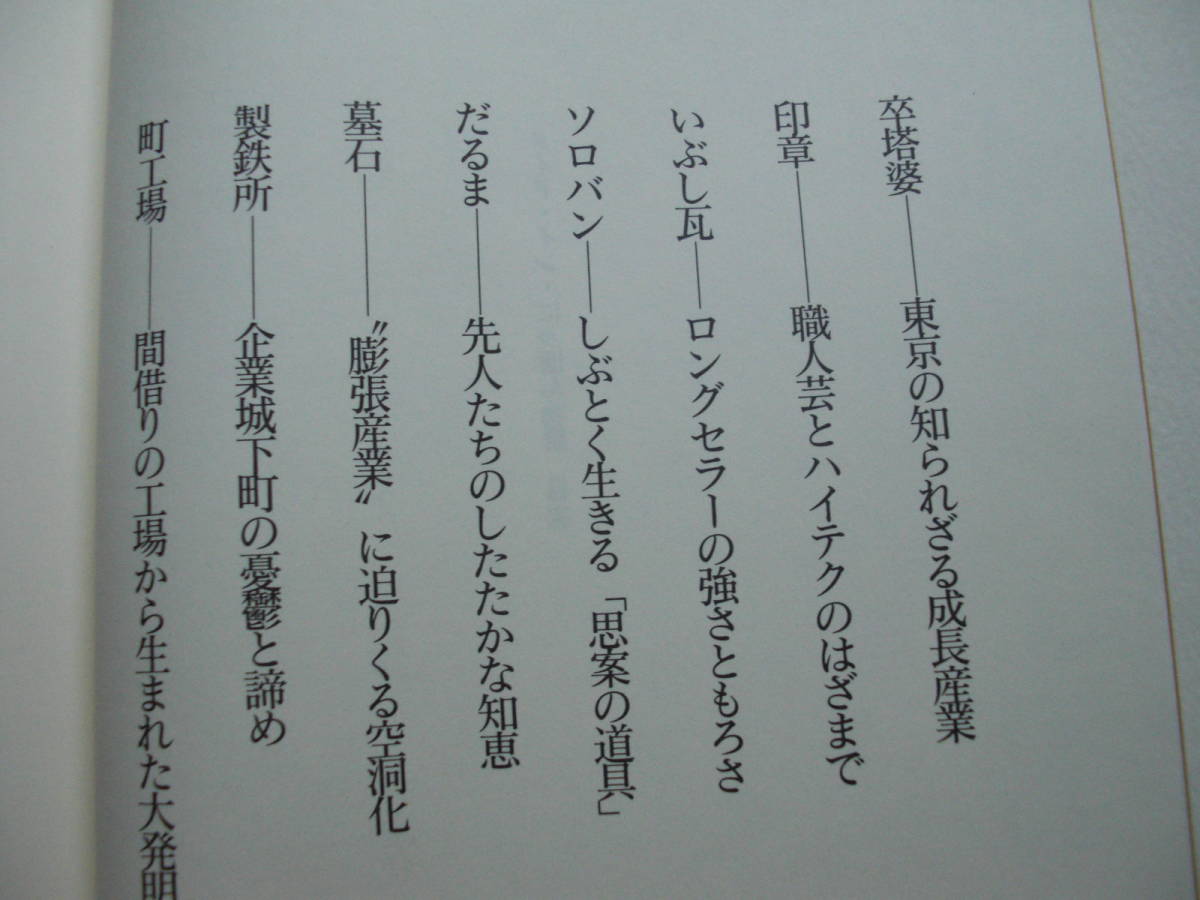 卒塔婆――東京の知られざる成長産業
印章――職人芸とハイテクのはざまで
いぶし瓦――ロングセラーの強さともろさ
ソロバン――しぶとく生きる「思案の道具」
だるま――先人たちのしたたかな知恵
墓石――〝膨張産業〟に迫りくる空洞化
製鉄所――企業城下町の憂鬱と諦め
町工場――間借りの工場から生まれた大発明